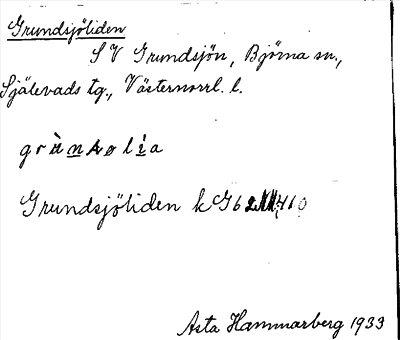 Grundsjöliden
SV Grundsjön, Björna sn.,
Själevads tg., Västernorrl. l.
Grundsjöliden k
Asta Hammarberg 1933